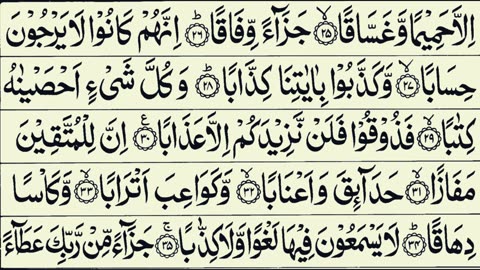 اِلَّا حَمِيْمًا وَّغَسَّاقًا ۙ﴿۲۵﴾ جَزَآءً وِّفَاقًا ؕ﴿۲۶﴾ اِنَّهُمْ كَانُوْا لَا يَرْجُوْنَ
حِسَابًا ۙ﴿۲۷﴾ وَّكَذَّبُوْا بِاٰيٰتِنَا كِذَّابًا ؕ﴿۲۸﴾ وَكُلَّ شَیْءٍ اَحْصَيْنٰهُ
كِتٰبًا ۙ﴿۲۹﴾ فَذُوْقُوْا فَلَنْ نَّزِيْدَكُمْ اِلَّا عَذَابًا ﴿۳۰﴾ ع اِنَّ لِلْمُتَّقِيْنَ
مَفَازًا ۙ﴿۳۱﴾ حَدَآئِقَ وَاَعْنَابًا ۙ﴿۳۲﴾ وَّكَوَاعِبَ اَتْرَابًا ۙ﴿۳۳﴾ وَّكَاْسًا
دِهَاقًا ؕ﴿۳۴﴾ لَا يَسْمَعُوْنَ فِيْهَا لَغْوًا وَّلَا كِذّٰبًا ۚ﴿۳۵﴾ جَزَآءً مِّنْ رَّبِّكَ عَطَآءً